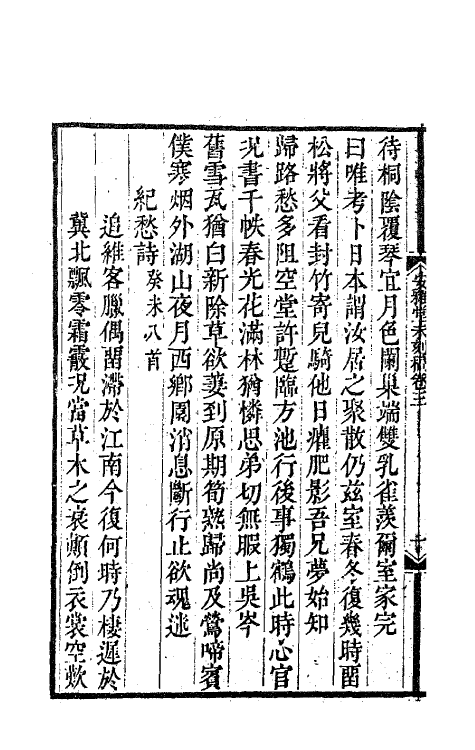 待桐陰覆琴宜月色闌巢端雙乳雀羨爾室家完
曰唯考卜日本謂汝居之聚散仍玆室春冬復幾時畱
松將父看封竹寄兒騎他日癯肥影吾兄夢始知
歸路愁多阻空堂許蹔臨方池行後事獨鶴此時心官
況書千帙春光花滿林猶憐思弟切無暇上吳岑
舊雪瓦猶白新除草欲萋到原期筍熟歸尚及鶯啼賓
僕寒烟外湖山夜月西鄉園消息斷行止欲魂迷
紀愁詩癸未八首
追維客臘偶畱滯於江南今復何時乃棲遲於
冀北飄零霜霰況當草木之衰顛倒衣裳空歎
安雅堂未刻稿卷三